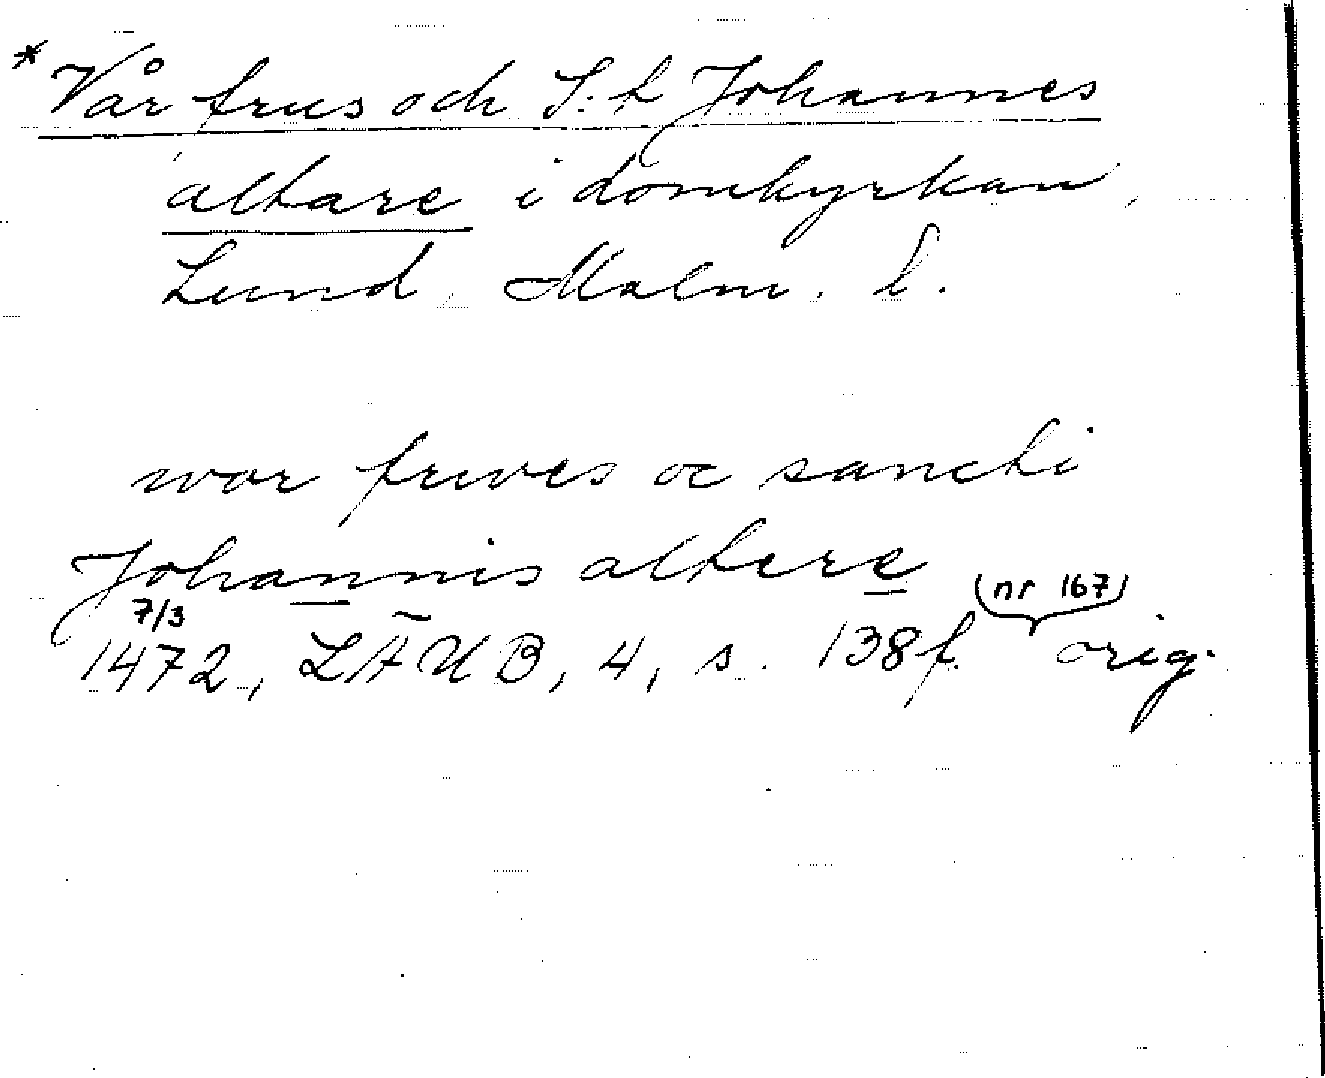 * Vår frus och S:t Johannes
altare i domkyrkan,
Lund, Malm. l.
wor frwes oc sancti
Johannis altere
7/3 (nr 167)
1472, LÄUB, 4, s. 138f. orig.